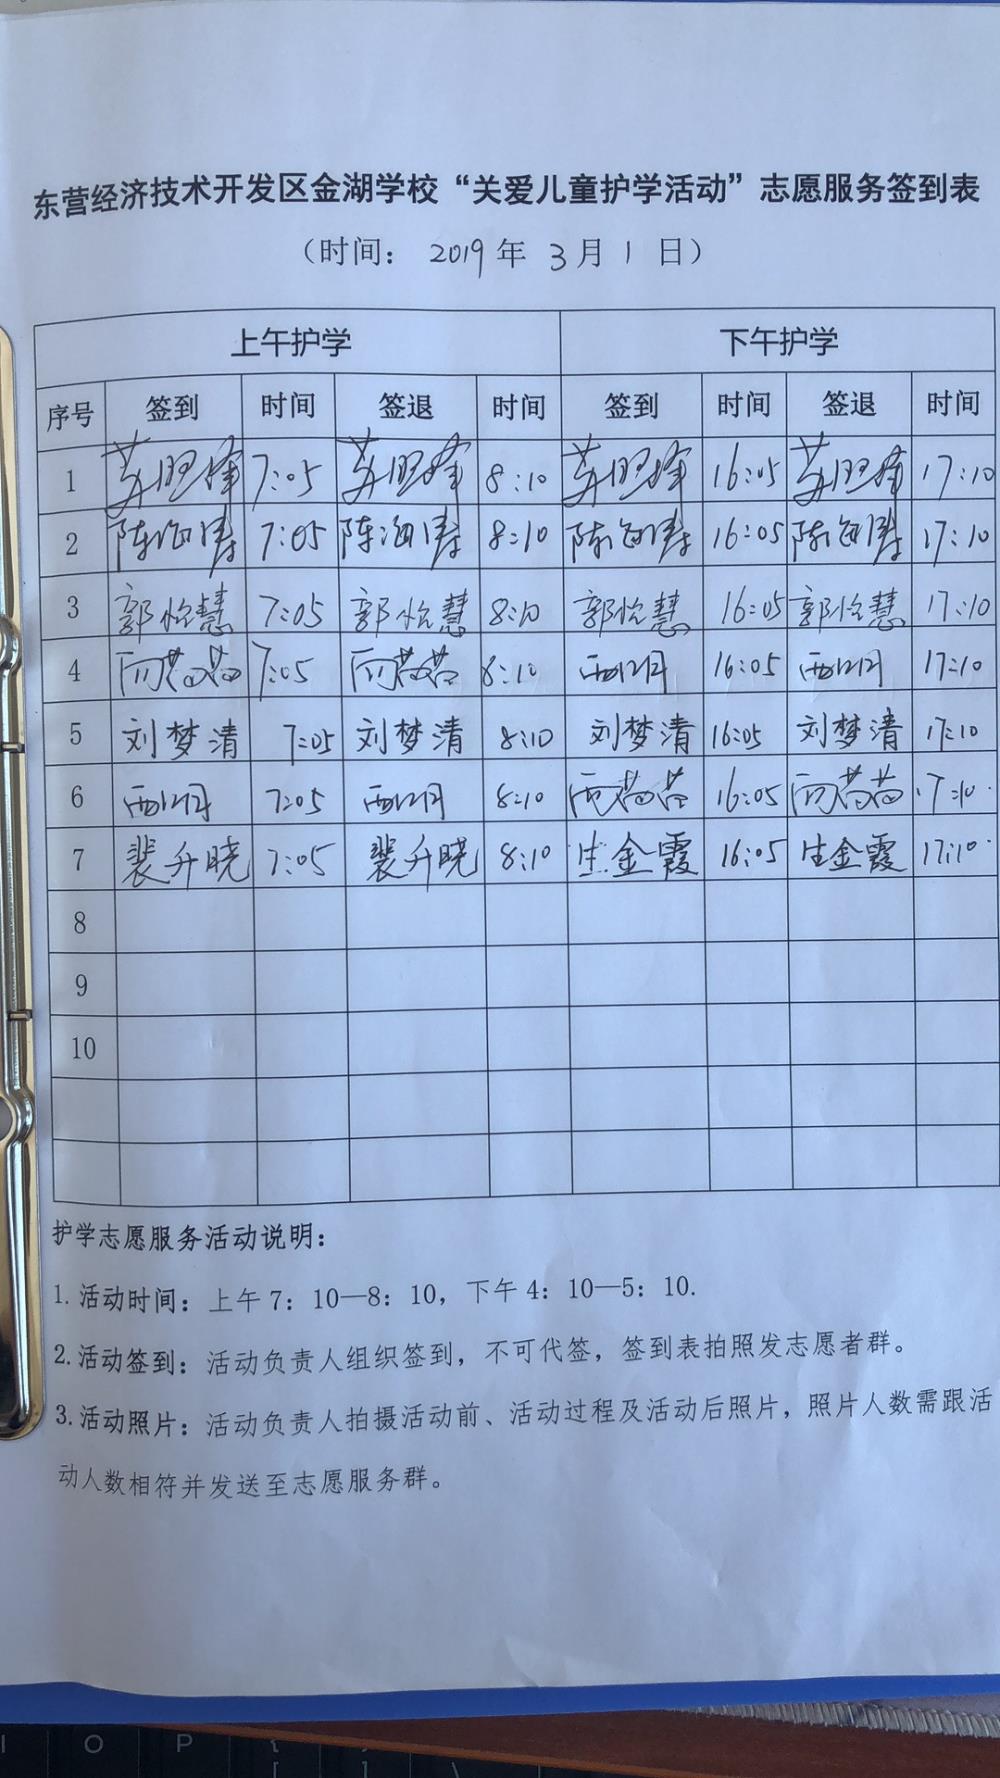 东营经济技术开发区金湖学校“关爱儿童护学活动”志愿服务签到表
（时间： 2019 年 3 月 1 日）
上午护学 下午护学
序号 签到 时间 签退 时间 签到 时间 签退 时间
1 7:05 8:10 16:05 17:10
2 陈海涛 7:05 陈海涛 8:10 陈海涛 16:05 陈海涛 17:10
3 郭怡慧 7:05 郭怡慧 8:10 郭怡慧 16:05 郭怡慧 17:10
4 7:05 8:10 16:05 17:10
5 刘梦清 7:05 刘梦清 8:10 刘梦清 16:05 刘梦清 17:10
6 7:05 8:10 16:05 17:10
7 裴升晓 7:05 裴升晓 8:10 生金霞 16:05 生金霞 17:10
8
9
10
护学志愿服务活动说明：
1.活动时间：上午 7：10—8：10，下午 4：10—5：10.
2.活动签到：活动负责人组织签到，不可代签，签到表拍照发志愿者群。
3.活动照片：活动负责人拍摄活动前、活动过程及活动后照片，照片人数需跟活
动人数相符并发送至志愿服务群。
I O P { [ } ]